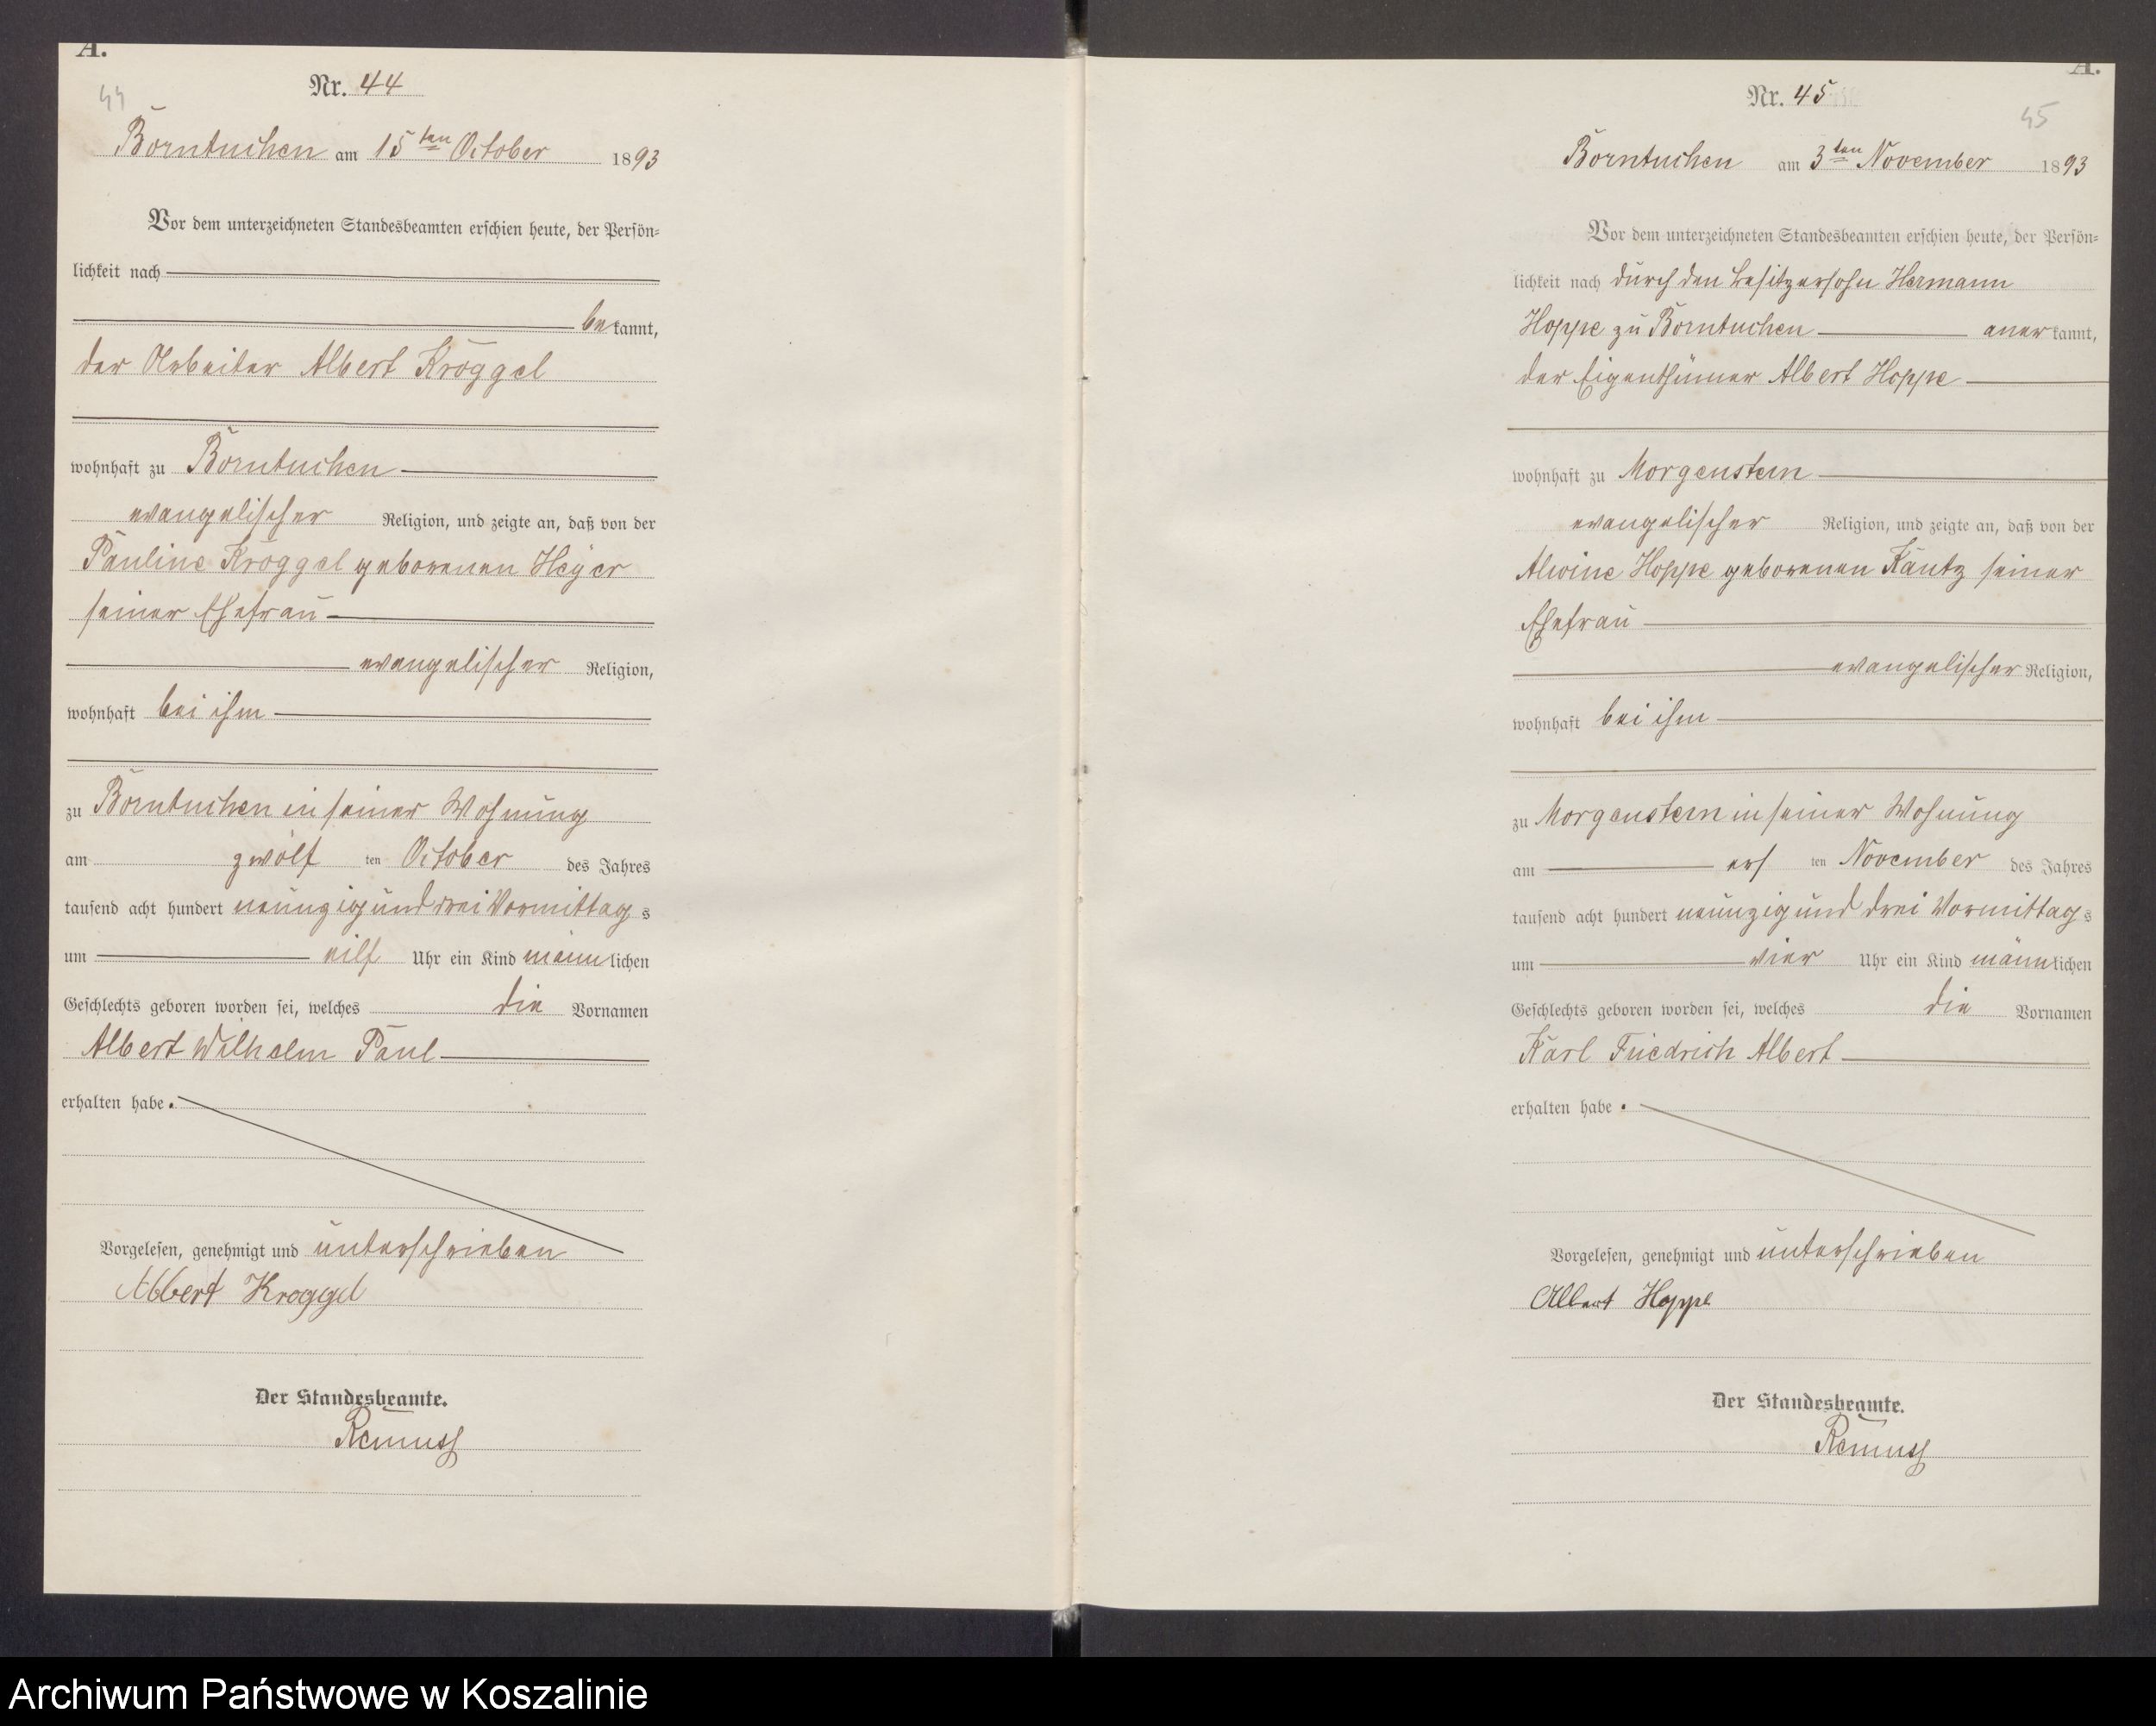 A.
44
Nr. 44
Borntuchen am 15ten October 1893
Vor dem unterzeichneten Standesbeamten erschien heute, der Persön-
lichkeit nach
bekannt,
der Arbeiter Albert Kroggel
wohnhaft zu Borntuchen
evangelischer Religion, und zeigte an, daß von der
Pauline Kroggel geborenen Heyer
seiner Ehefrau
evangelischer Religion,
wohnhaft bei ihm
zu Borntuchen in seiner Wohnung
am zwölf ten October des Jahres
tausend acht hundert neunzig und drei Vormittags
um eilf Uhr ein Kind männlichen
Geschlechts geboren worden sei, welches die Vornamen
Albert Wilhelm Paul
erhalten habe.
Vorgelesen, genehmigt und unterschrieben
Albert Kroggel
Der Standesbeamte.
Remuss
A.
45
Nr. 45
Borntuchen am 3ten November 1893
Vor dem unterzeichneten Standesbeamten erschien heute, der Persön-
lichkeit nach durch den Besitzersohn Hermann
Hoppe zu Borntuchen anerkannt,
der Eigenthümer Albert Hoppe
wohnhaft zu Morgenstern
evangelischer Religion, und zeigte an, daß von der
Alwine Hoppe geborenen Kautz seiner
Ehefrau
evangelischer Religion,
wohnhaft bei ihm
zu Morgenstern in seiner Wohnung
am ers ten November des Jahres
tausend acht hundert neunzig und drei Vormittags
um vier Uhr ein Kind männlichen
Geschlechts geboren worden sei, welches die Vornamen
Karl Friedrich Albert
erhalten habe.
Vorgelesen, genehmigt und unterschrieben
Albert Hoppe
Der Standesbeamte.
Remuss
Archiwum Państwowe w Koszalinie